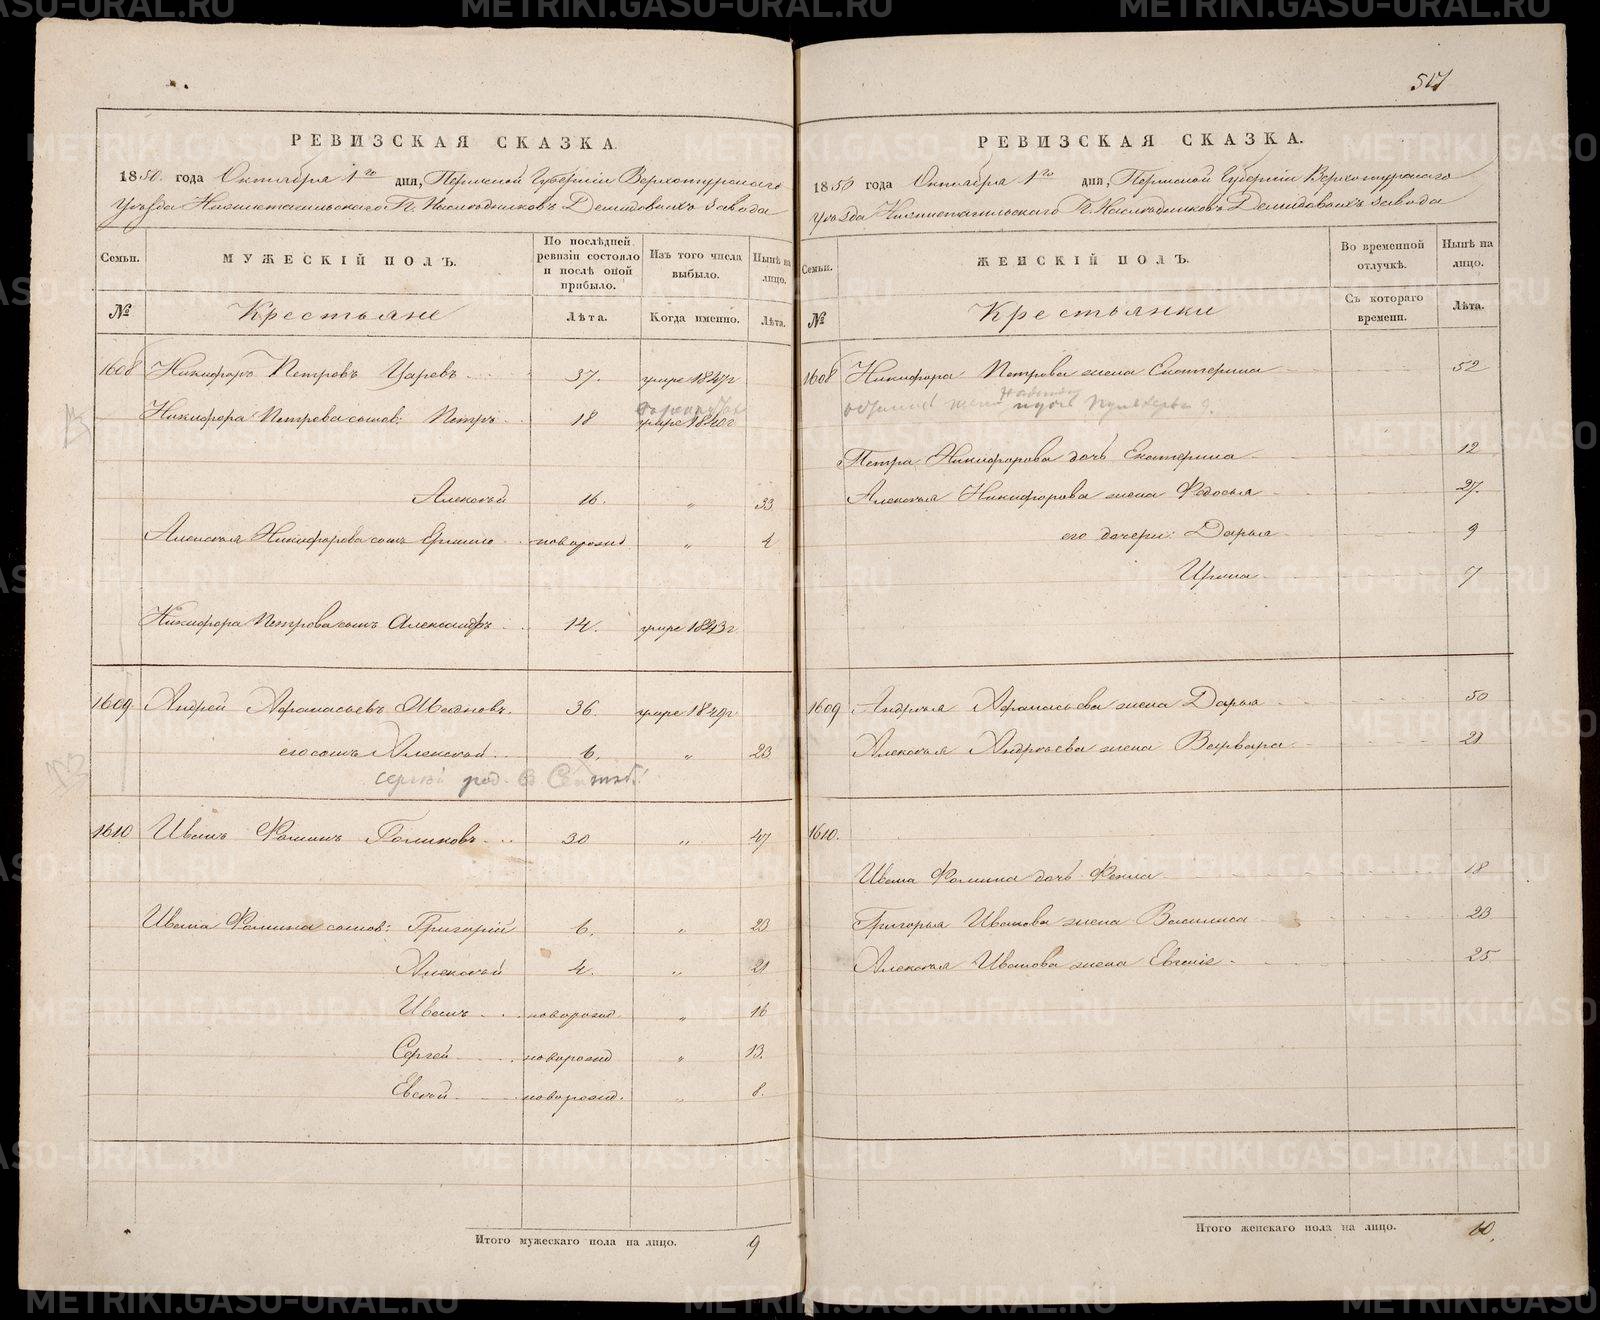 517
РЕВИЗСКАЯ СКАЗКА
1850. года Октября 1го дня, Пермской Губерніи Верхотурскаго
Уѣзда Нижнетагильскаго Г. Наслѣдниковъ Демидовыхъ завода
Семьи.
МУЖЕСКІЙ ПОЛЪ.
По послѣдней ревизіи состояло и послѣ оной прибыло.
Изъ того числа выбыло.
Нынѣ на лицо.
№
Крестьяне
Лѣта.
Когда именно.
Лѣта.
1608 Никифоръ Петровъ Царевъ 37. умре 1847г
Никифора Петрова сынов: Петръ 18 умре 1840г
Алексѣй 16. " 33
Алексѣя Никифорова сынъ новорожд " 4
Никифора Петрова сынъ Александръ 14. умре 1843г
1609 Андрей Афанасьевъ 36. умре 1849г
его сынъ Алексѣй 6. " 23
сергѣй род. в
1610 Иванъ Фоминъ Голиковъ 30 " 47
Ивана Фомина сынов: Григорій 6. " 23
Алексѣй 4. " 21
Иванъ новорожд " 16
Сергей новорожд " 13.
Евсѣй новорожд. " 8.
Итого мужескаго пола на лицо. 9
РЕВИЗСКАЯ СКАЗКА.
1850 года Октября 1го дня, Пермской Губерніи Верхотурскаго
Уѣзда Нижнетагильскаго Г. Наслѣдниковъ Демидовыхъ завода
Семьи.
ЖЕНСКІЙ ПОЛЪ.
Во временной отлучкѣ.
Нынѣ на лицо.
№
Крестьянки
Съ котораго времени.
Лѣта.
1608 Никифора Петрова жена Екатерина 52
Петра Никифорова дочь Екатерина 12
Алексѣя Никифорова жена Федосья 27.
его дочери: Дарья 9
Ирина 7
1609 Андрѣя Афанасьева жена Дарья 50
Алексѣя Андрѣева жена Варвара 21
1610.
Ивана Фомина дочь Фекла 18
Григорья Иванова жена Василиса 23
Алексѣя Иванова жена Евгенія 25
Итого женскаго пола на лицо. 10.
METRIKI.GASO-URAL.RU